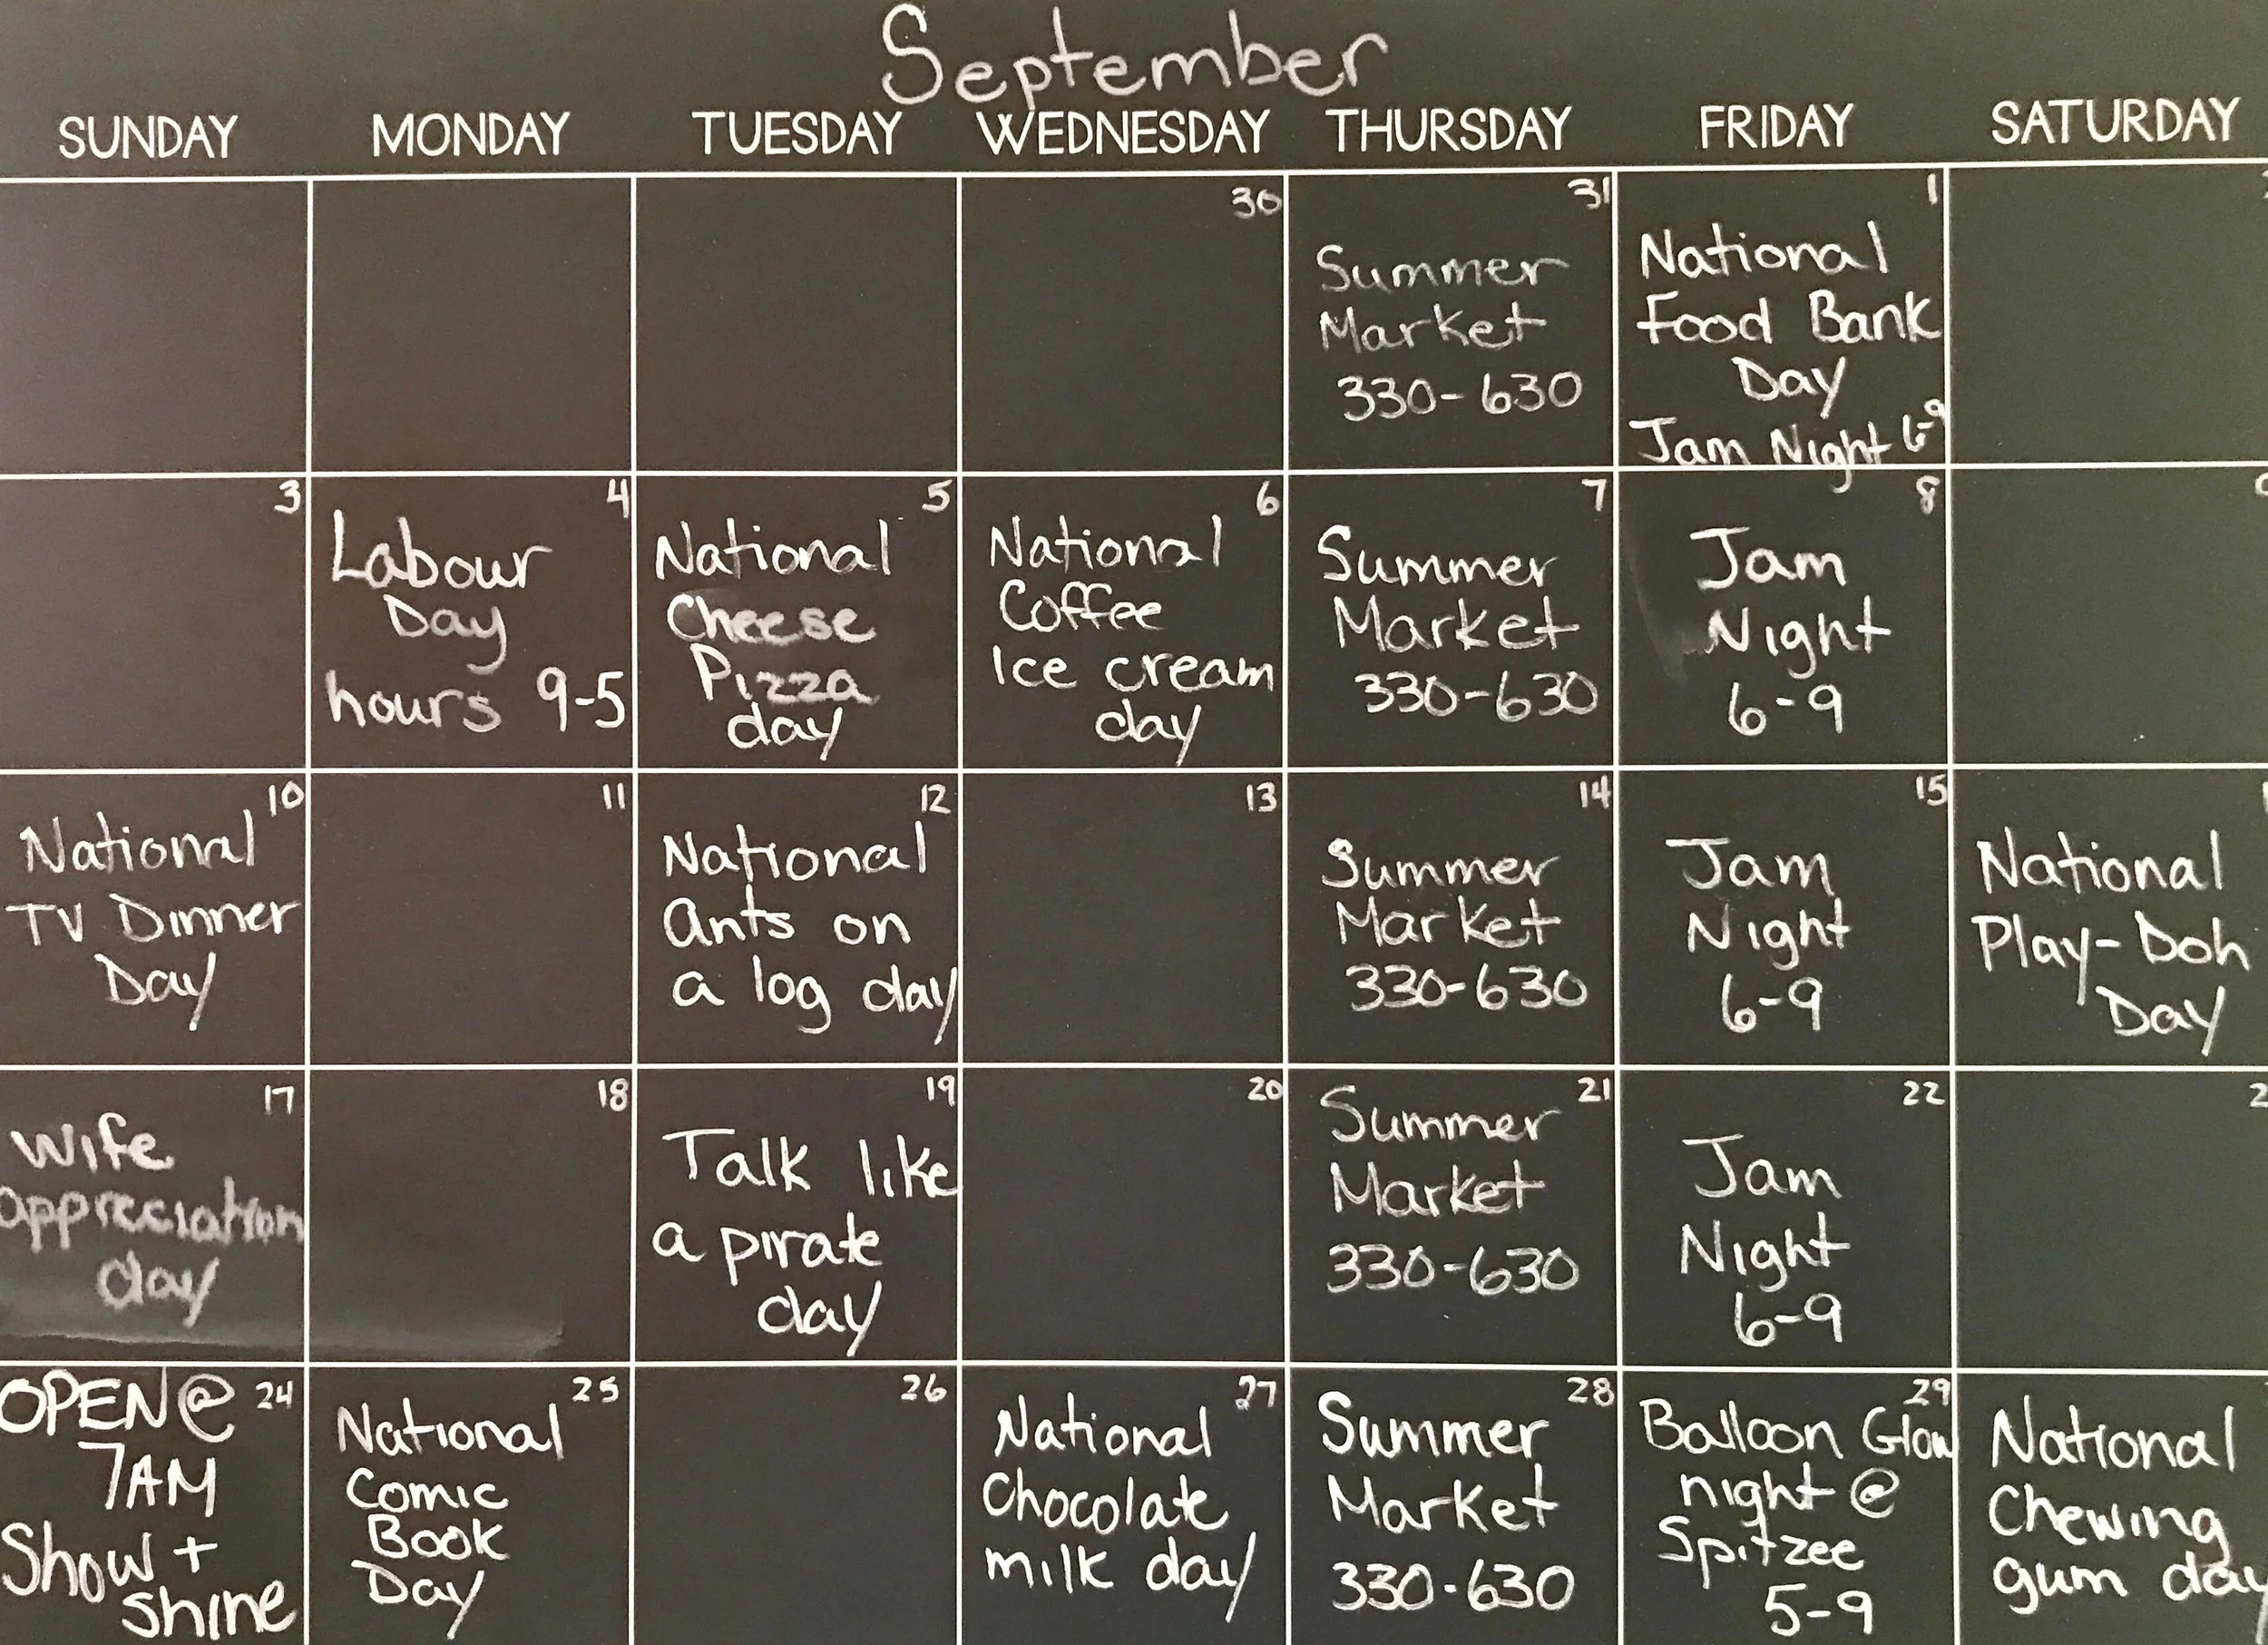 September
SUNDAY MONDAY TUESDAY WEDNESDAY THURSDAY FRIDAY SATURDAY
30
31
Summer
Market
330-630
1
National
Food Bank
Day
Jam Night 6-9
3
4
Labour
Day
hours 9-5
5
National
Cheese
Pizza
day
6
National
Coffee
Ice cream
day
7
Summer
Market
330-630
8
Jam
Night
6-9
10
National
TV Dinner
Day
11
12
National
Ants on
a log day
13
14
Summer
Market
330-630
15
Jam
Night
6-9
National
Play-Doh
Day
17
Wife
appreciation
day
18
19
Talk like
a pirate
day
20
21
Summer
Market
330-630
22
Jam
Night
6-9
24
OPEN@
7AM
Show +
shine
25
National
Comic
Book
Day
26
27
National
Chocolate
milk day
28
Summer
Market
330-630
29
Balloon Glow
night @
Spitzee
5-9
National
Chewing
gum day